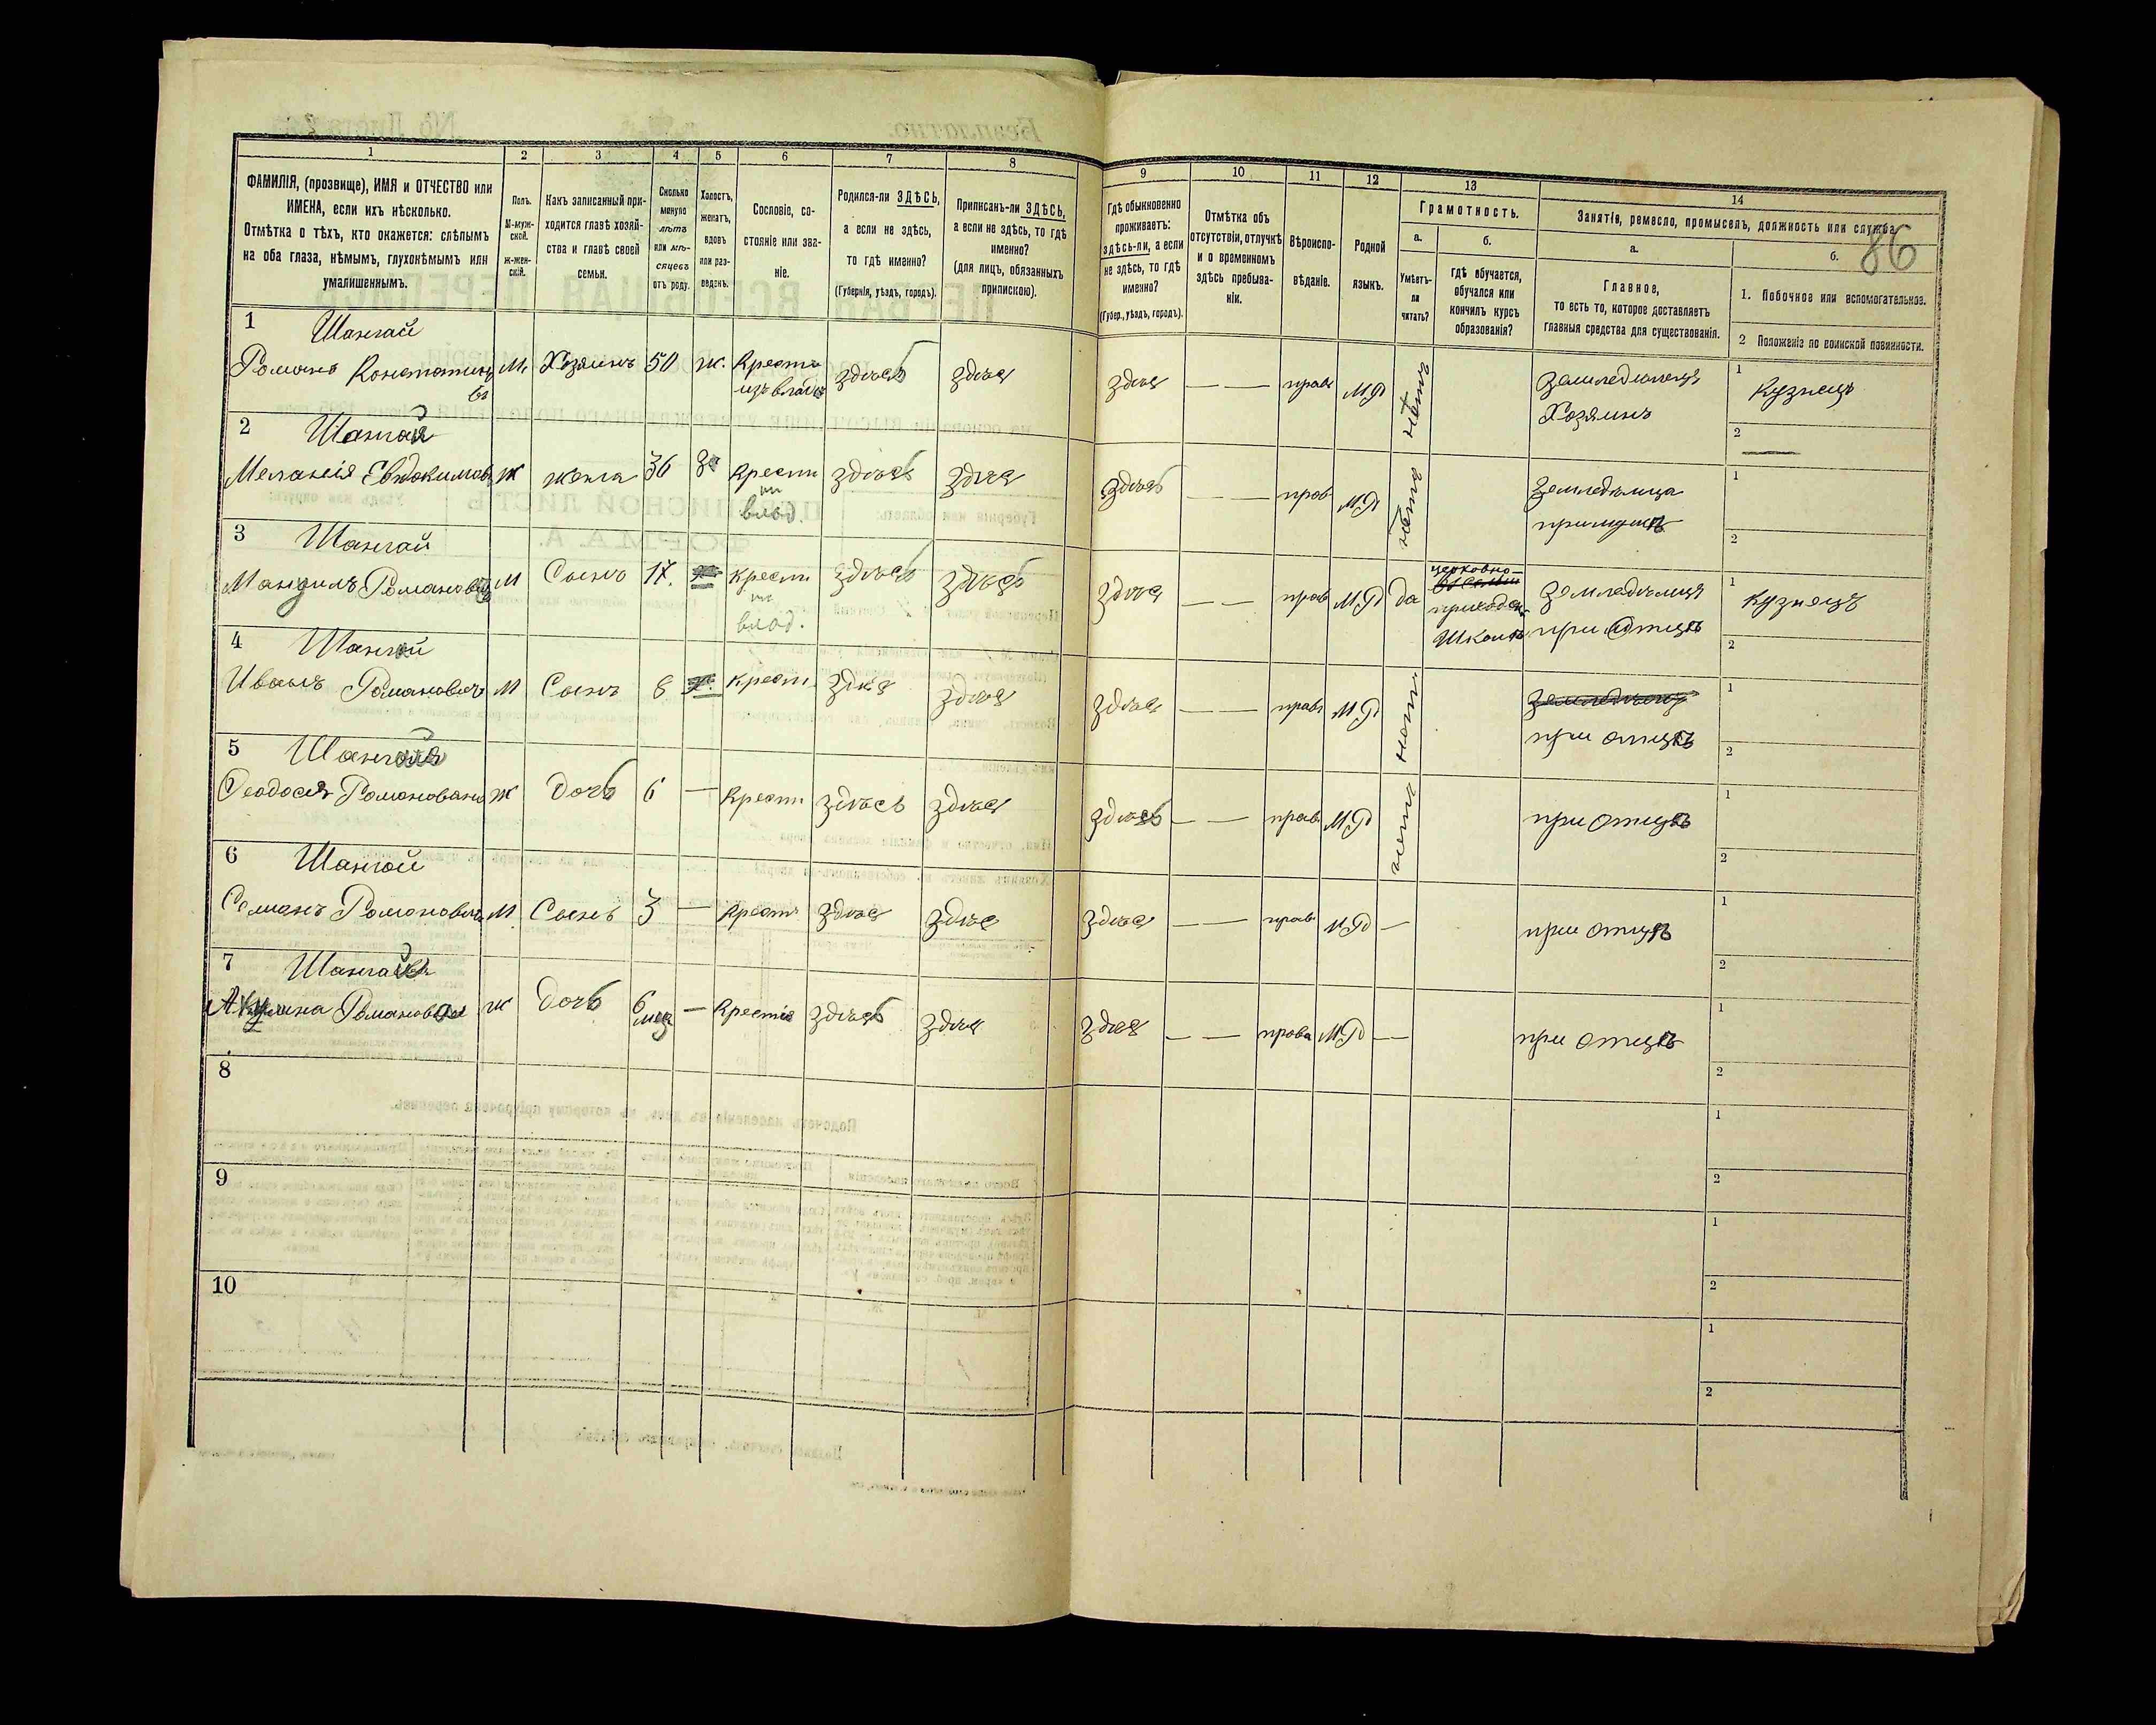 86
1
2
3
4
5
6
7
8
9
10
11
12
13
14
ФАМИЛІЯ, (прозвище), ИМЯ и ОТЧЕСТВО или
ИМЕНА, если ихъ нѣсколько.
Отмѣтка о тѣхъ, кто окажется: слѣпымъ
на оба глаза, нѣмымъ, глухонѣмымъ или
умалишеннымъ.
Полъ.
М-муж-
ской.
ж-жен-
скій.
Какъ записанный при-
ходится главѣ хозяй-
ства и главѣ своей
семьи.
Сколько
минуло
лѣтъ
или мѣ-
сяцевъ
отъ роду.
Холостъ,
женатъ,
вдовъ
или раз-
веденъ.
Сословіе, со-
стояніе или зва-
ніе.
Родился-ли ЗДѢСЬ,
а если не здѣсь,
то гдѣ именно?
(Губернія, уѣздъ, городъ).
Приписанъ-ли ЗДѢСЬ,
а если не здѣсь, то гдѣ
именно?
(для лицъ, обязанныхъ
припискою).
Гдѣ обыкновенно
проживаетъ:
здѣсь-ли, а если
не здѣсь, то гдѣ
именно?
(Губер., уѣздъ, городъ).
Отмѣтка объ
отсутствіи, отлучкѣ
и о временномъ
здѣсь пребыва-
ніи.
Вѣроиспо-
вѣданіе.
Родной
языкъ.
Грамотность.
а.
Умѣетъ-
ли
читать?
б.
Гдѣ обучается,
обучался или
кончилъ курсъ
образованія?
Занятіе, ремесло, промыселъ, должность или служба.
а.
Главное,
то есть то, которое доставляетъ
главныя средства для существованія.
б.
1. Побочное или вспомогательное.
2 Положеніе по воинской повинности.
1 Шангай
Романъ Константинов М. Хозяинъ 50 ж. Крест. здѣсь здѣсь здѣсь — — прав МР нѣтъ Земледѣлецъ
Хозяинъ
1 Кузнецъ
2
2 Шангай
Меланія Евдокимов Ж жена 36 з Крест здѣсь здѣсь здѣсь — — прав МР нѣтъ Земледѣлица
влад.
1
2
3 Шангай
Романов М Сынъ 17. Крест здѣсь здѣсь здѣсь — — прав МР да церковно-
приходск
Школѣ
Земледѣлецъ
при Отцѣ
влад.
1 Кузнецъ
2
4 Шангай
Иванъ Романовъ М Сынъ 8 Крест здѣсь здѣсь здѣсь — — прав МР нѣтъ
при отцѣ
1
2
5 Шангай
Феодосія Романовна Ж Дочь 6 — Крест здѣсь здѣсь здѣсь — — прав МР нѣтъ при отцѣ
1
2
6 Шангай
Семенъ Романовичъ М Сынъ 3 — Крест здѣсь здѣсь здѣсь — — прав МР — при отцѣ
1
2
7 Шангай
Акулина Романова Ж Дочь 6 мѣс — Крест здѣсь здѣсь здѣсь — — прав МР — при отцѣ
1
2
8
1
2
9
1
2
10
1
2